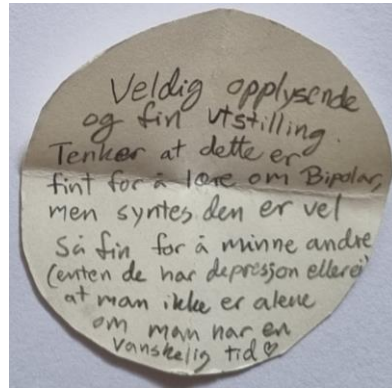 Veldig opplysende
og fin utstilling.
Tenker at dette er
fint for å lære om Bipolar,
men syntes den er vel
Så fin for å minne andre
(enten de har depresjon eller ei)
at man ikke er alene
om man har en
vanskelig tid ♡